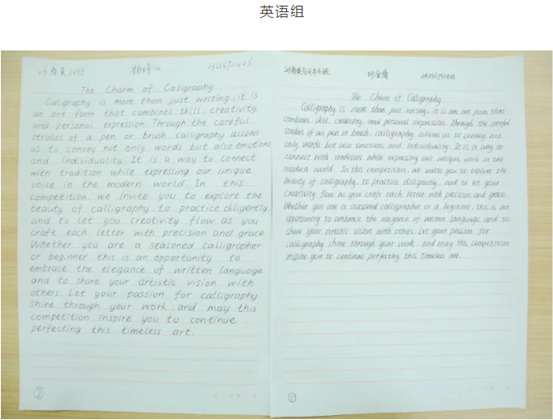 英语组
The Charm of Calligraphy
Calligraphy is more than just writing; it is
an art form that combines skill, creativity,
and personal expression. Through the careful
strokes of a pen or brush, calligraphy allows
us to convey not only words but also emotions
and individuality. It is a way to connect
with tradition while expressing our unique
voice in the modern world. In this
competition, we invite you to explore the
beauty of calligraphy, to practice diligently,
and to let your creativity flow as you
craft each letter with precision and grace.
Whether you are a seasoned calligrapher
or beginner, this is an opportunity to
embrace the elegance of written language
and to share your artistic vision with
others. Let your passion for calligraphy
shine through your work, and may this
competition inspire you to continue
perfecting this timeless art.
②
The Charm of Calligraphy
Calligraphy is more than just writing; it is an art form that
combines skill, creativity, and personal expression. Through the careful
strokes of a pen or brush, calligraphy allows us to convey not
only words but also emotions and individuality. It is a way to
connect with tradition while expressing our unique voice in the
modern world. In this competition, we invite you to explore the
beauty of calligraphy, to practice diligently, and to let your
creativity flow as you craft each letter with precision and grace.
Whether you are a seasoned calligrapher or a beginner, this is an
opportunity to embrace the elegance of written language and to
share your artistic vision with others. Let your passion for
calligraphy shine through your work, and may this competition
inspire you to continue perfecting this timeless art.
①